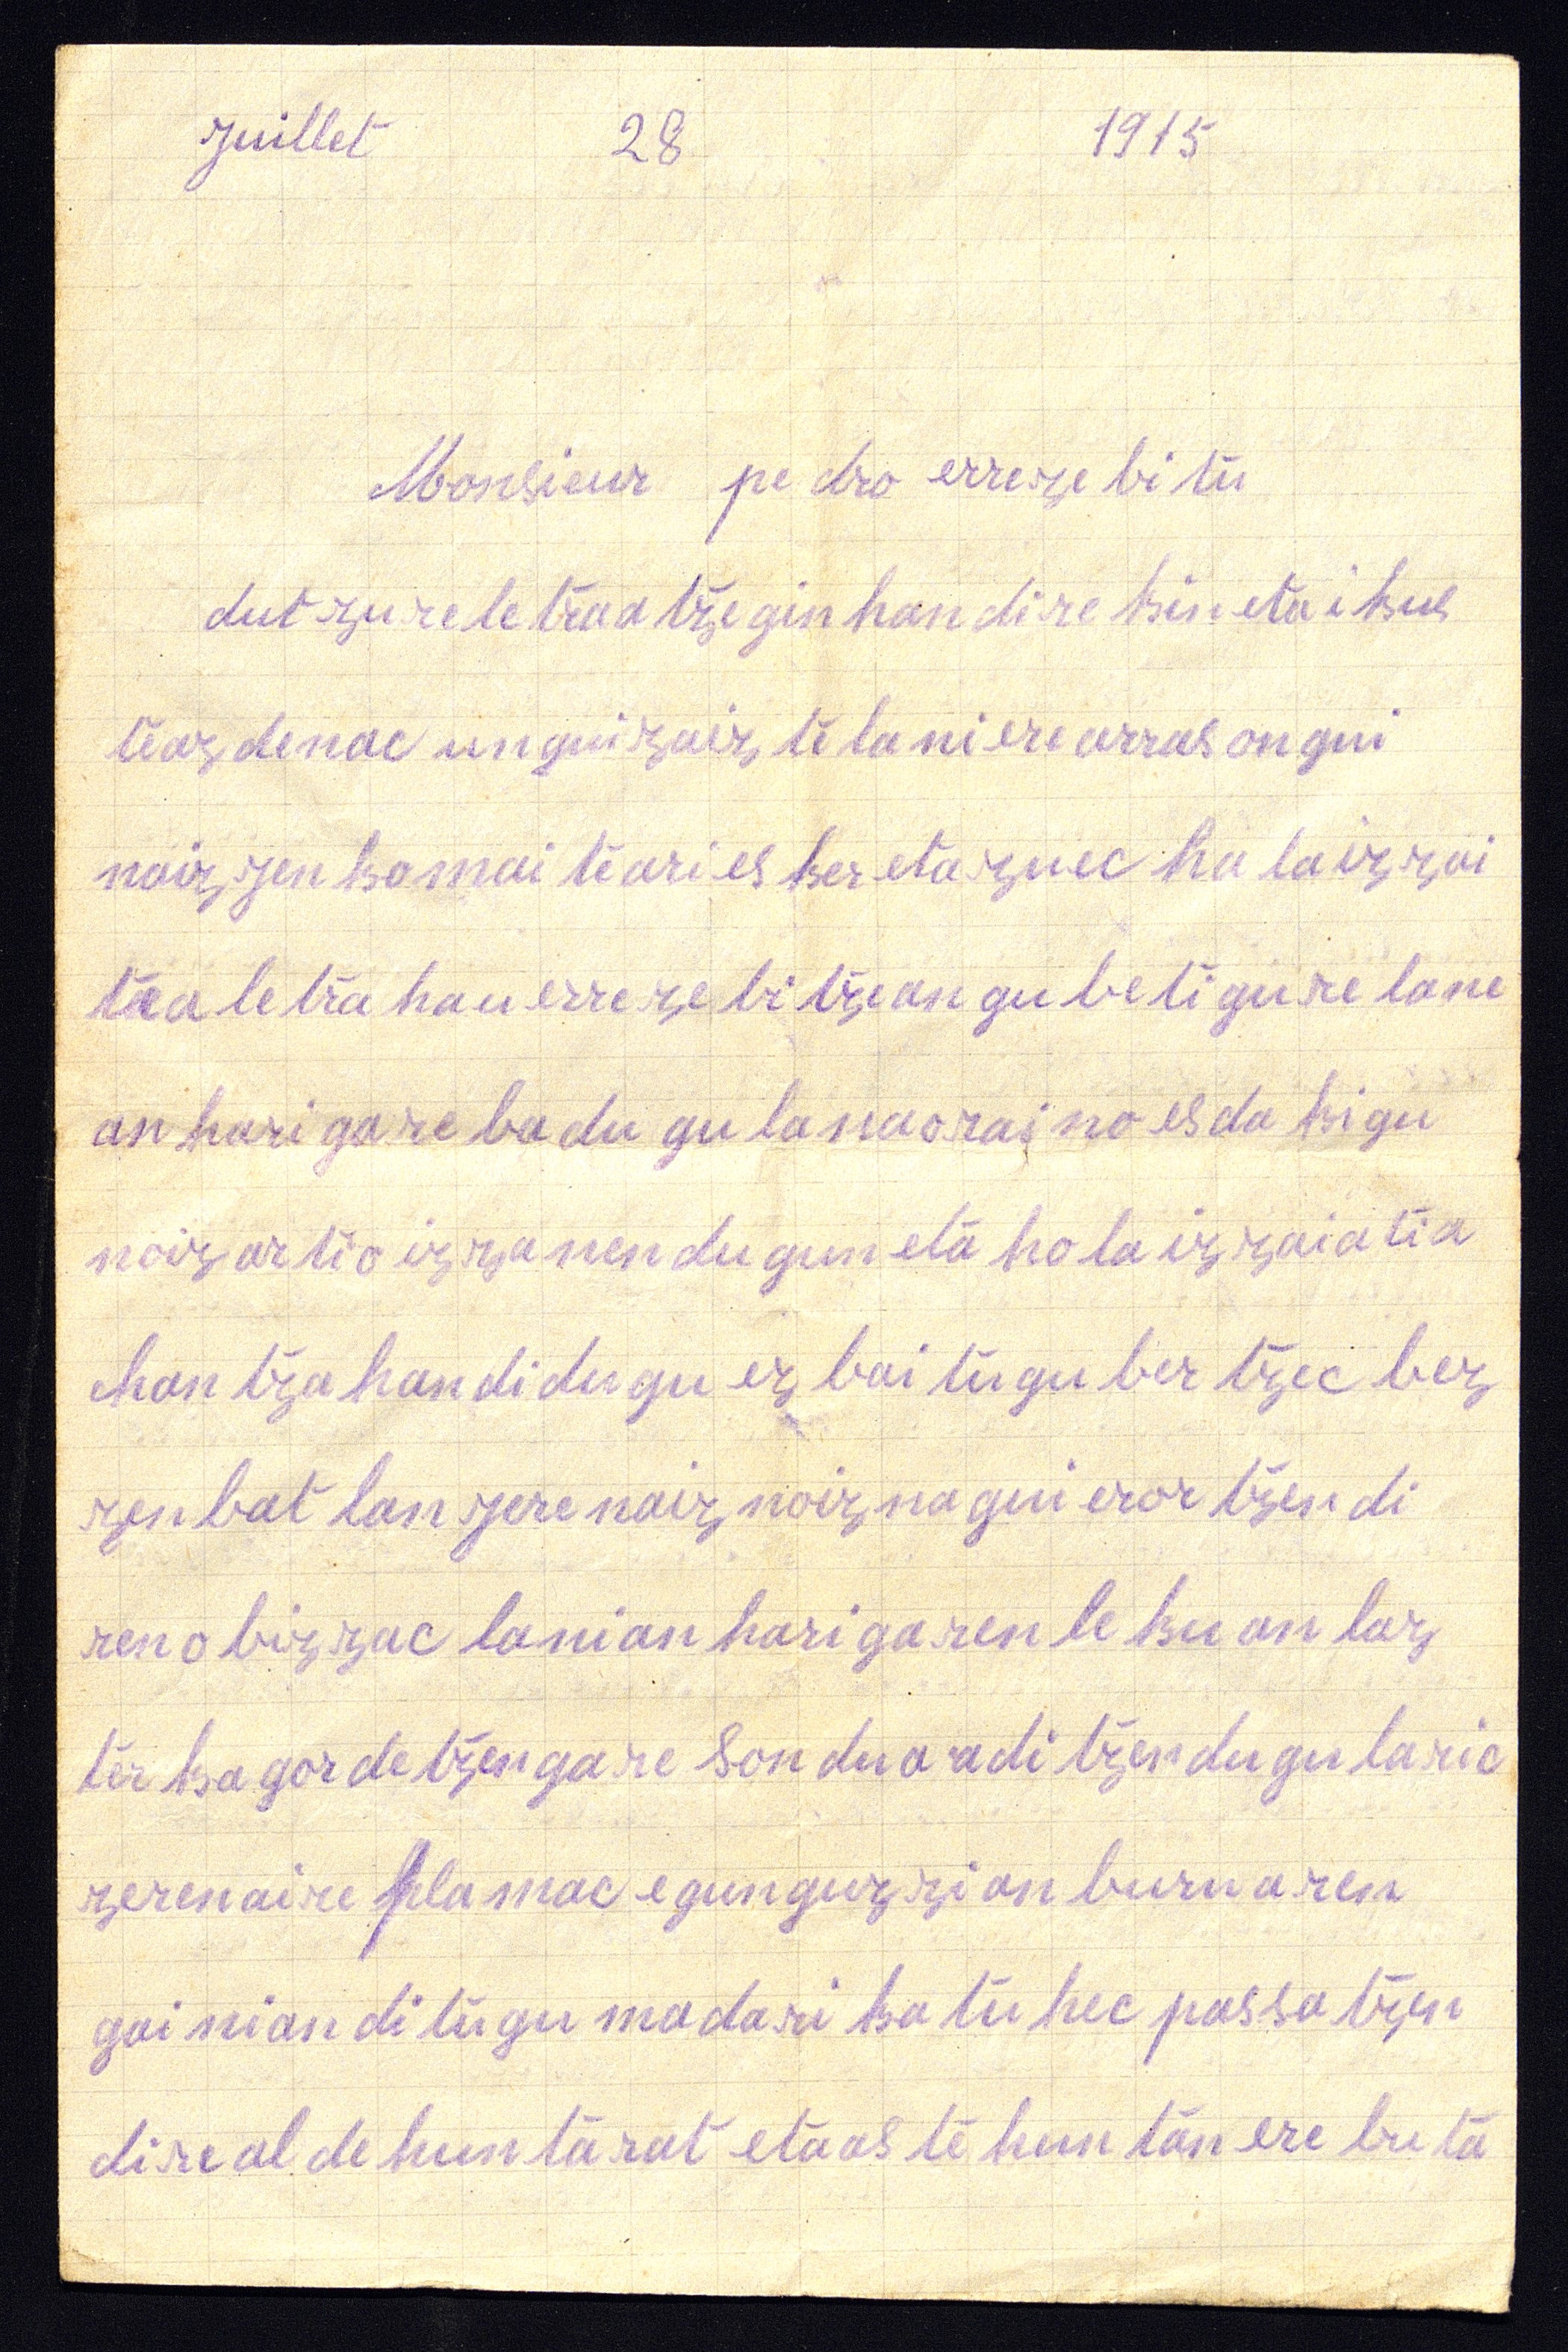 Juillet 28 1915
Monsieur pedro errezebitu
dut zure letra atzegin handirekin eta ikus
teaz denac ungui zaizte la ni ere arras ongui
naiz jenkomaiteari esker eta zuec hala izzai
tea letra hau errezebitzean gu beti gure lane
an hari gare badugu lana orai no esdakigu
noiz artio izzanen dugun eta hola izzaiatia
chantza handi dugu ez baitugu bertzec bez
zenbat lan jere naiz noiz nagui erortzen di
ren obizzac lanian hari garen lekuan laz
terka gordetzen gare sondua aditzen dugularic
zerenaireplamac egun guzzian buruaren
gainian ditugu madarikatu hec passatzen
dire alde huntarat eta aste huntan ere buta